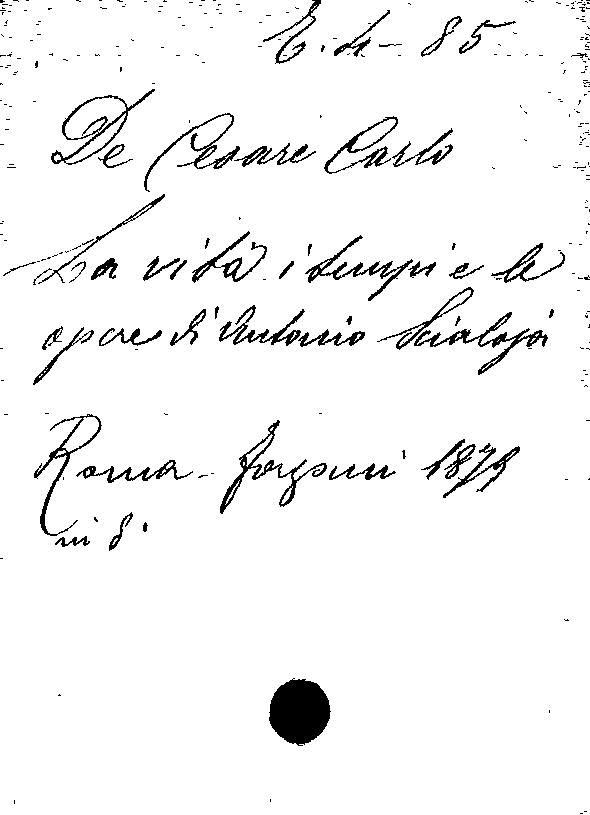 E. 4 - 85
De Cesare Carlo
La vita i tempi e le
opere di Antonio Scialoja
Roma - Forzani 1879
in 8°